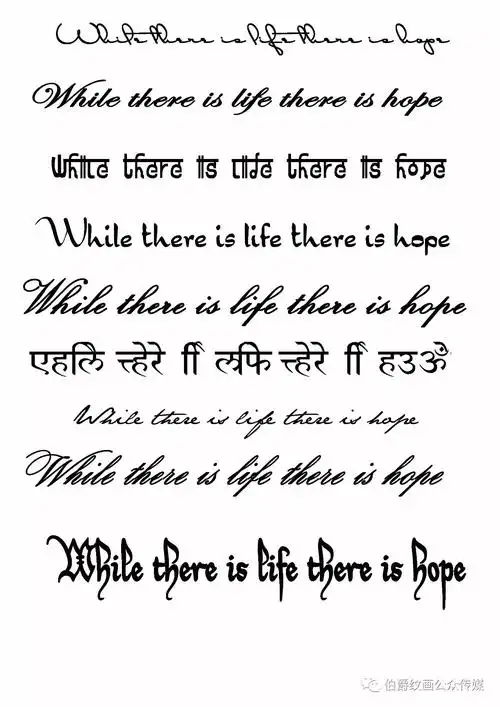 While there is life there is hope
While there is life there is hope
While there is life there is hope
While there is life there is hope
While there is life there is hope
एहलि त्हेरे ाि लफि त्हेरे ाि हउॐ
While there is life there is hope
While there is life there is hope
While there is life there is hope
伯爵纹画公众传媒